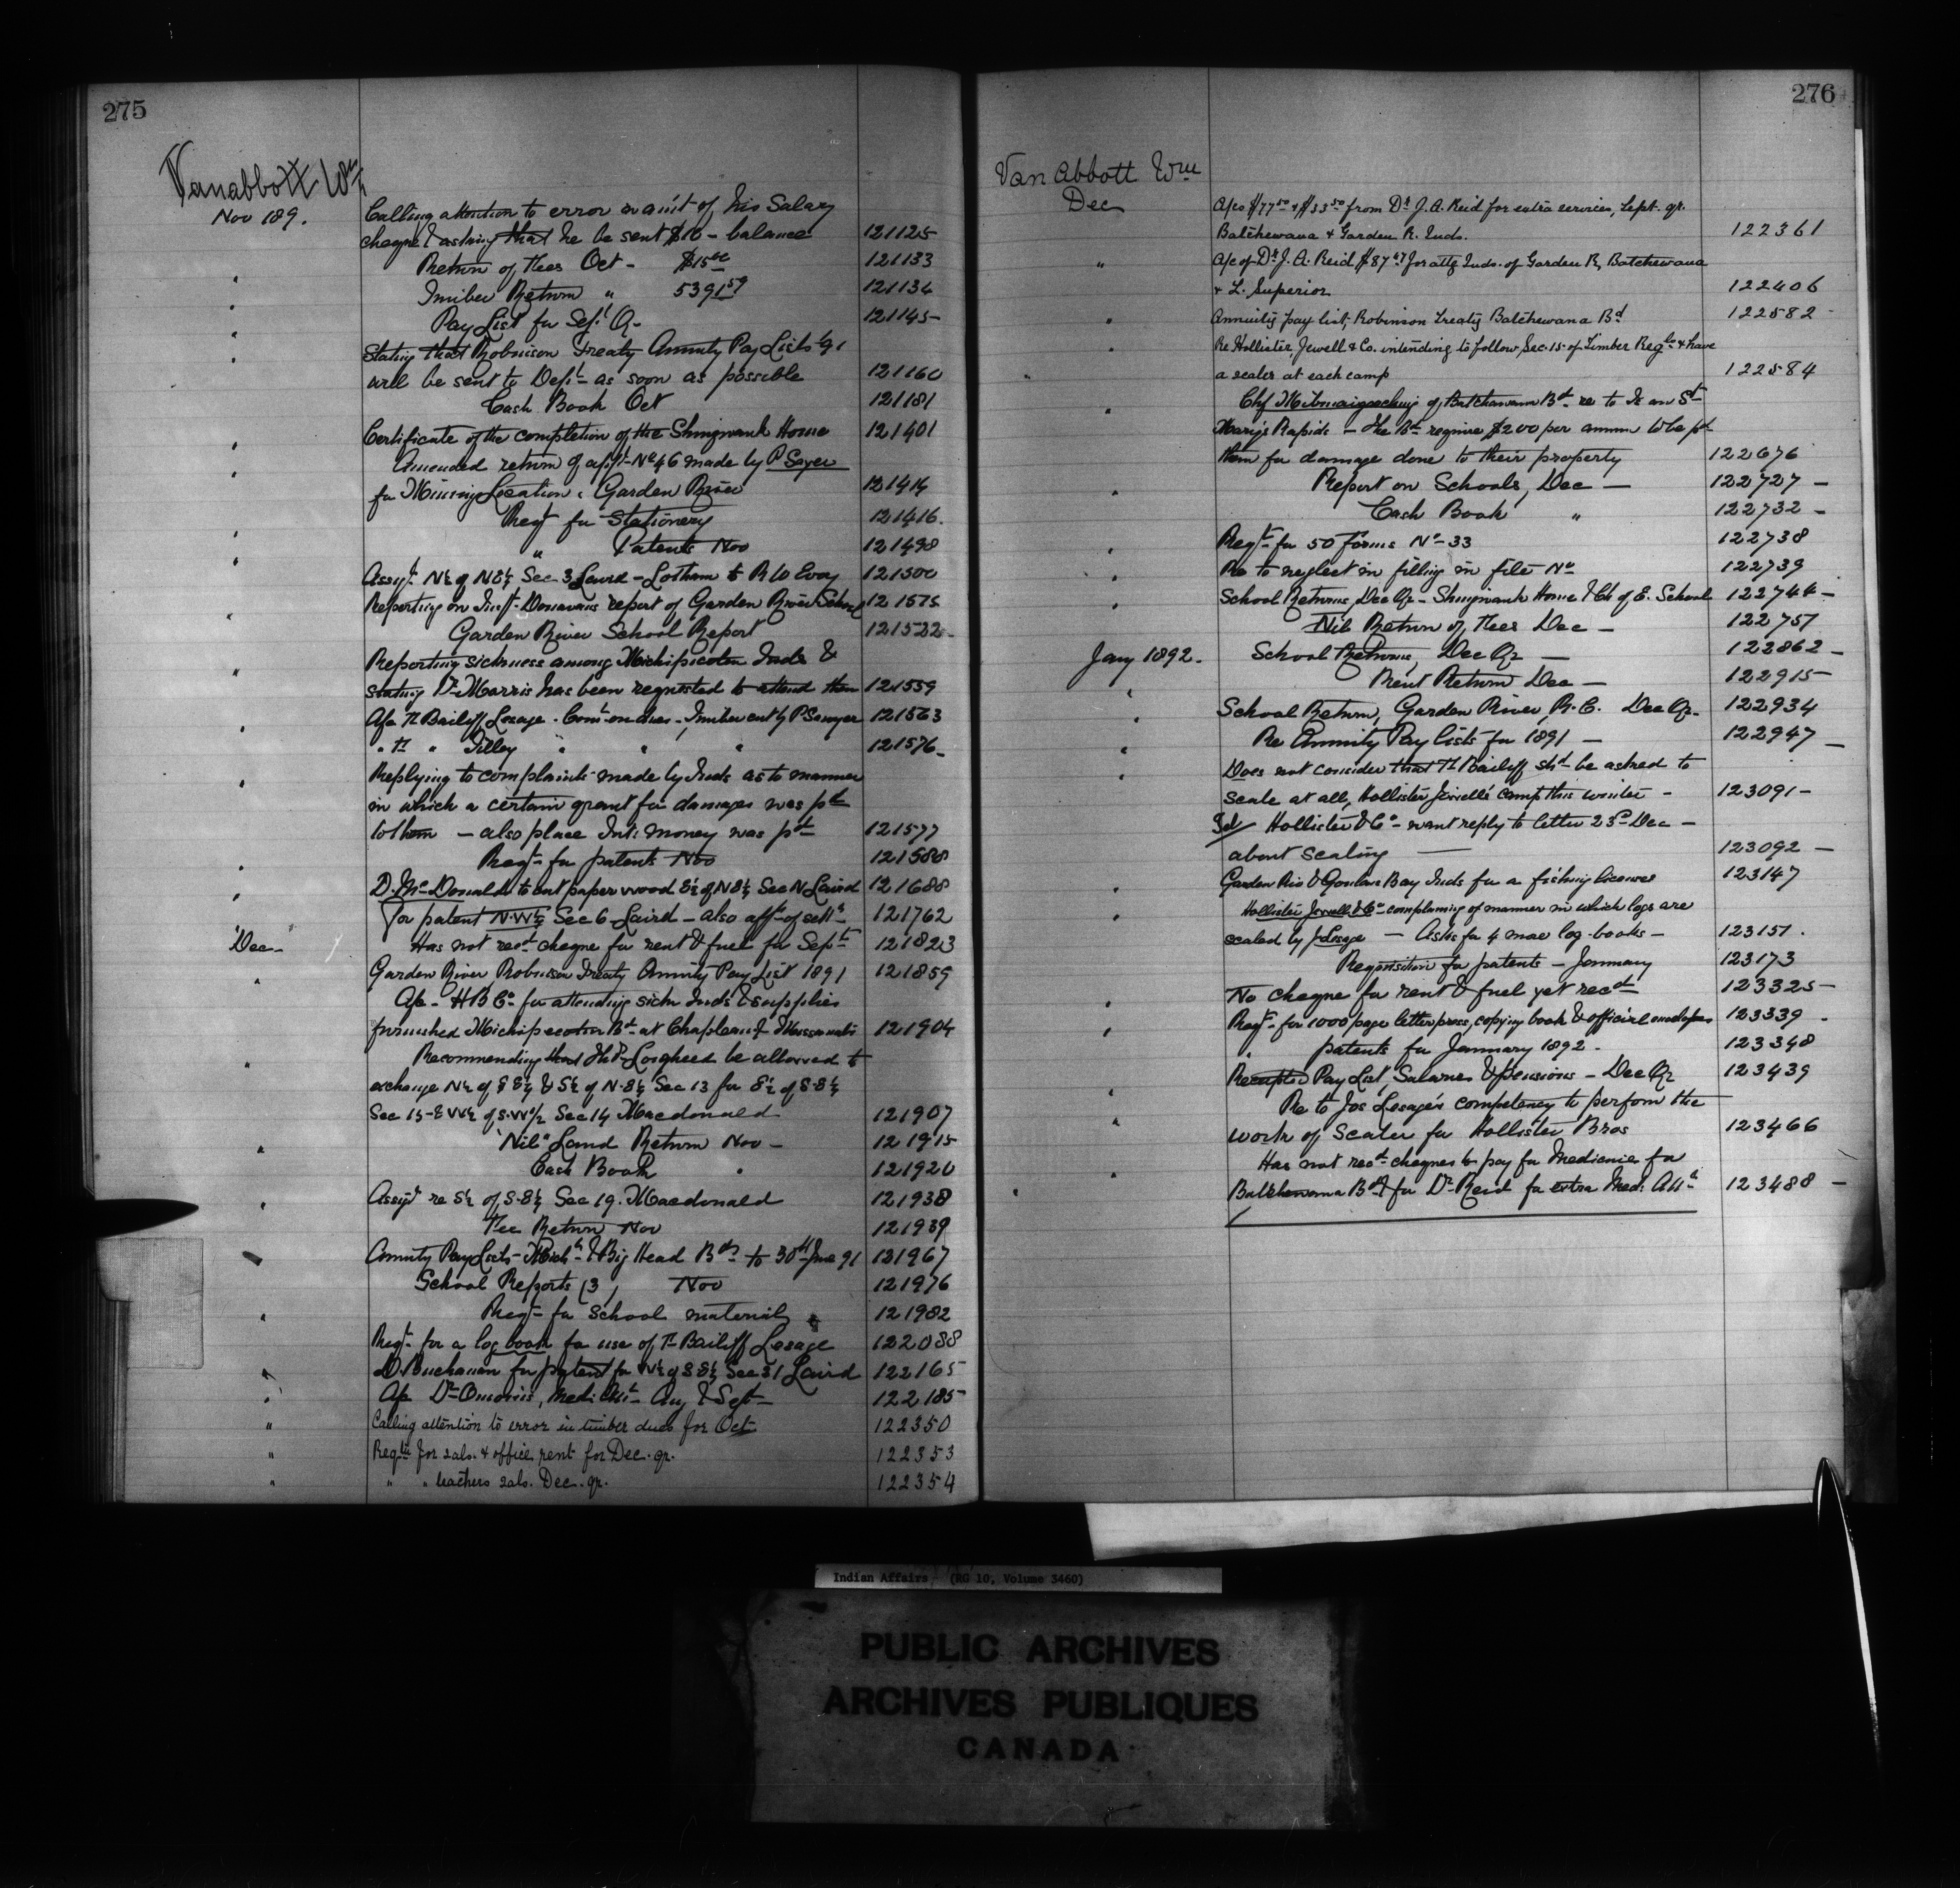 275
Vanabbott Wm
Nov 189.
Calling attention to error in am't of his Salary
cheque & asking that he be sent $10 - balance 121125
Return of Fees Oct - $15 121133
" Timber Return " 5391 59 121134
" Pay List for Sept Qr 121145
" Stating that Robinson Treaty Annuity Pay Lists 91
will be sent to Dept as soon as possible 121160
Cash Book Oct 121181
Certificate of the completion of the Shingwauk Home 121401
" Amended return of appt No 46 made by P Sayer
for Mining Location, Garden River 121414
Reqt for Stationery 121416.
" " Patents Nov 121498
" Assgt N½ of NE¼ Sec 3 Laird - to R 121500
Reporting on Inspt Donavans report of Garden River School 121575
" Garden River School Report 121522
Reporting sickness among Michipicoten Inds &
" stating Dr Morris has been requested to attend them 121559
A/c Tr Bailiff Lesage. Comn on dues, Timber cut by P Sawyer 121563
" " Tr " Tilley " " " 121576
Replying to complaints made by Inds as to manner
" in which a certain grant for damages was pd
to them - also place Int: money was pd 121577
" Reqt for patents Nov 121588
" D. McDonald to cut paper wood E½ of NE¼ Sec N Laird 121688
" For patent N.W¼ Sec 6 Laird - also afft of settt 121762
Dec - Has not recd cheque for rent & fuel for Sept 121823
" Garden River Robinson Treaty Annuity Pay List 1891 121859
A/c - H B Co for attending sick Inds & supplies
furnished Michipicoten Bd at Chapleau & 121904
" Recommending that Lougheed be allowed to
exchange N½ of SE¼ & S½ of N.E¼ Sec 13 for E½ of S.E¼
Sec 15 - & W½ of S.W¼ Sec 14 Macdonald 121907
" "Nil" Land Return Nov - 121915
Cash Book " 121920
Assgt re S½ of S.E¼ Sec 19. Macdonald 121938
Fee Return Nov 121939
Annuity Pay Lists - Mich & Big Head Bds to 30th June 91 121967
School Reports (3) Nov 121976
" Reqt for School material 121982
Reqt for a log book for use of Tr Bailiff Lesage 122088
" D. Buchanan for patent for N½ of S.E¼ Sec 31 Laird 122165
" A/c Dr Morris, Medl Att Aug & Sept 122185
" Calling attention to error in timber dues for Oct 122350
" Reqtn for sals. & office rent for Dec. qr. 122353
" " " teachers sals. Dec. qr. 122354
276
Van Abbott Wm
Dec
A/cs $77 50 & $33 50 from Dr J. A. Reid for extra services, Sept. qr.
Batchewana & Garden R. Inds. 122361
" A/c of Dr J. A. Reid $87 47 for attg Inds. of Garden R, Batchewana
& L. Superior 122406
" Annuity pay list, Robinson Treaty Batchewana Bd 122582
" Re Hollister, Jewell & Co. intending to follow Sec. 15 of Timber Regls & have
" a scaler at each camp 122584
" Chf of Batchewana Bd re to Is on St
Mary's Rapids - the Bd require $200 per annum to be pd
them for damage done to their property 122676
" Report on Schools, Dec - 122727 -
Cash Book " 122732 -
" Reqt for 50 forms No - 33 122738
" Re to neglect in filling in file No 122739
" School Returns, Dec Qr - Shingwauk Home & Ch of E. School 122744 -
Nil Return of Fees Dec - 122757
Jany 1892. School Returns, Dec Qr - 122862 -
Rent Return Dec - 122915
" School Return, Garden River, R.C. Dec Qr. 122934
Re Annuity Pay lists for 1891 - 122947 -
" Does not consider that Tr Bailiff shd be asked to
scale at all, Hollister Jewells' camps this winter - 123091 -
Tel/ Hollister & Co - want reply to letter 23d Dec -
about scaling 123092 -
" Garden Riv & Goulais Bay Inds for a fishing licenses 123147
" Hollister Jewell & Co complaining of manner in which logs are
scaled by J Lesage - Asks for 4 more log-books - 123151.
Requisition for patents - January 123173
" No cheque for rent & fuel yet recd 123325 -
" Reqt - for 1000 page letter press, copying book & official envelopes 123339 -
" patents for January 1892. 123348
" Receipted Pay List, Salaries & pensions - Dec Qr 123439
" Re to Jos Lesage's competency to perform the
work of Scaler for Hollister Bros 123466
" Has not recd cheques to pay for Medicine for
Batchewana Bd & for Dr Reid for extra Med: Att 123488 -
Indian Affairs (RG 10, Volume 3460)
PUBLIC ARCHIVES
ARCHIVES PUBLIQUES
CANADA